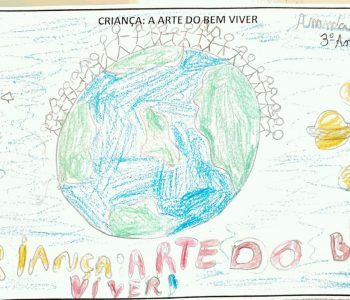 CRIANÇA: A ARTE DO BEM VIVER
Amanda
3º An
RIANÇA: ARTE DO B
VIVER!